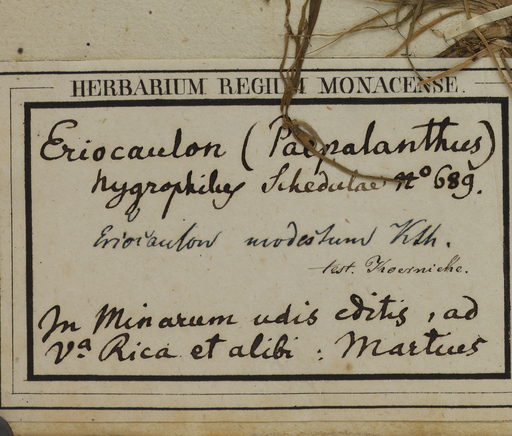 HERBARIUM REGIUM MONACENSE.
Eriocaulon (Paepalanthus)
hygrophilus Schedulae no 689.
Eriocaulon modestum Kth.
test. Koernicke.
In Minarum udis editis, ad
Va Rica et alibi : Martius